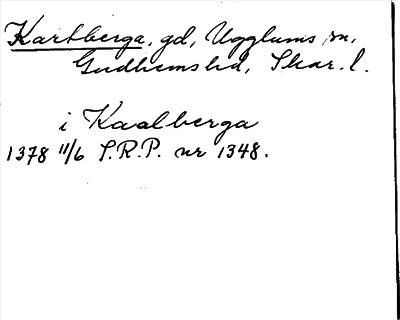 Karlberga, gd, Ugglums sn,
Gudhems hd, Skar. l.
i Kaalberga
1378 11/6 S.R.P. nr 1348.